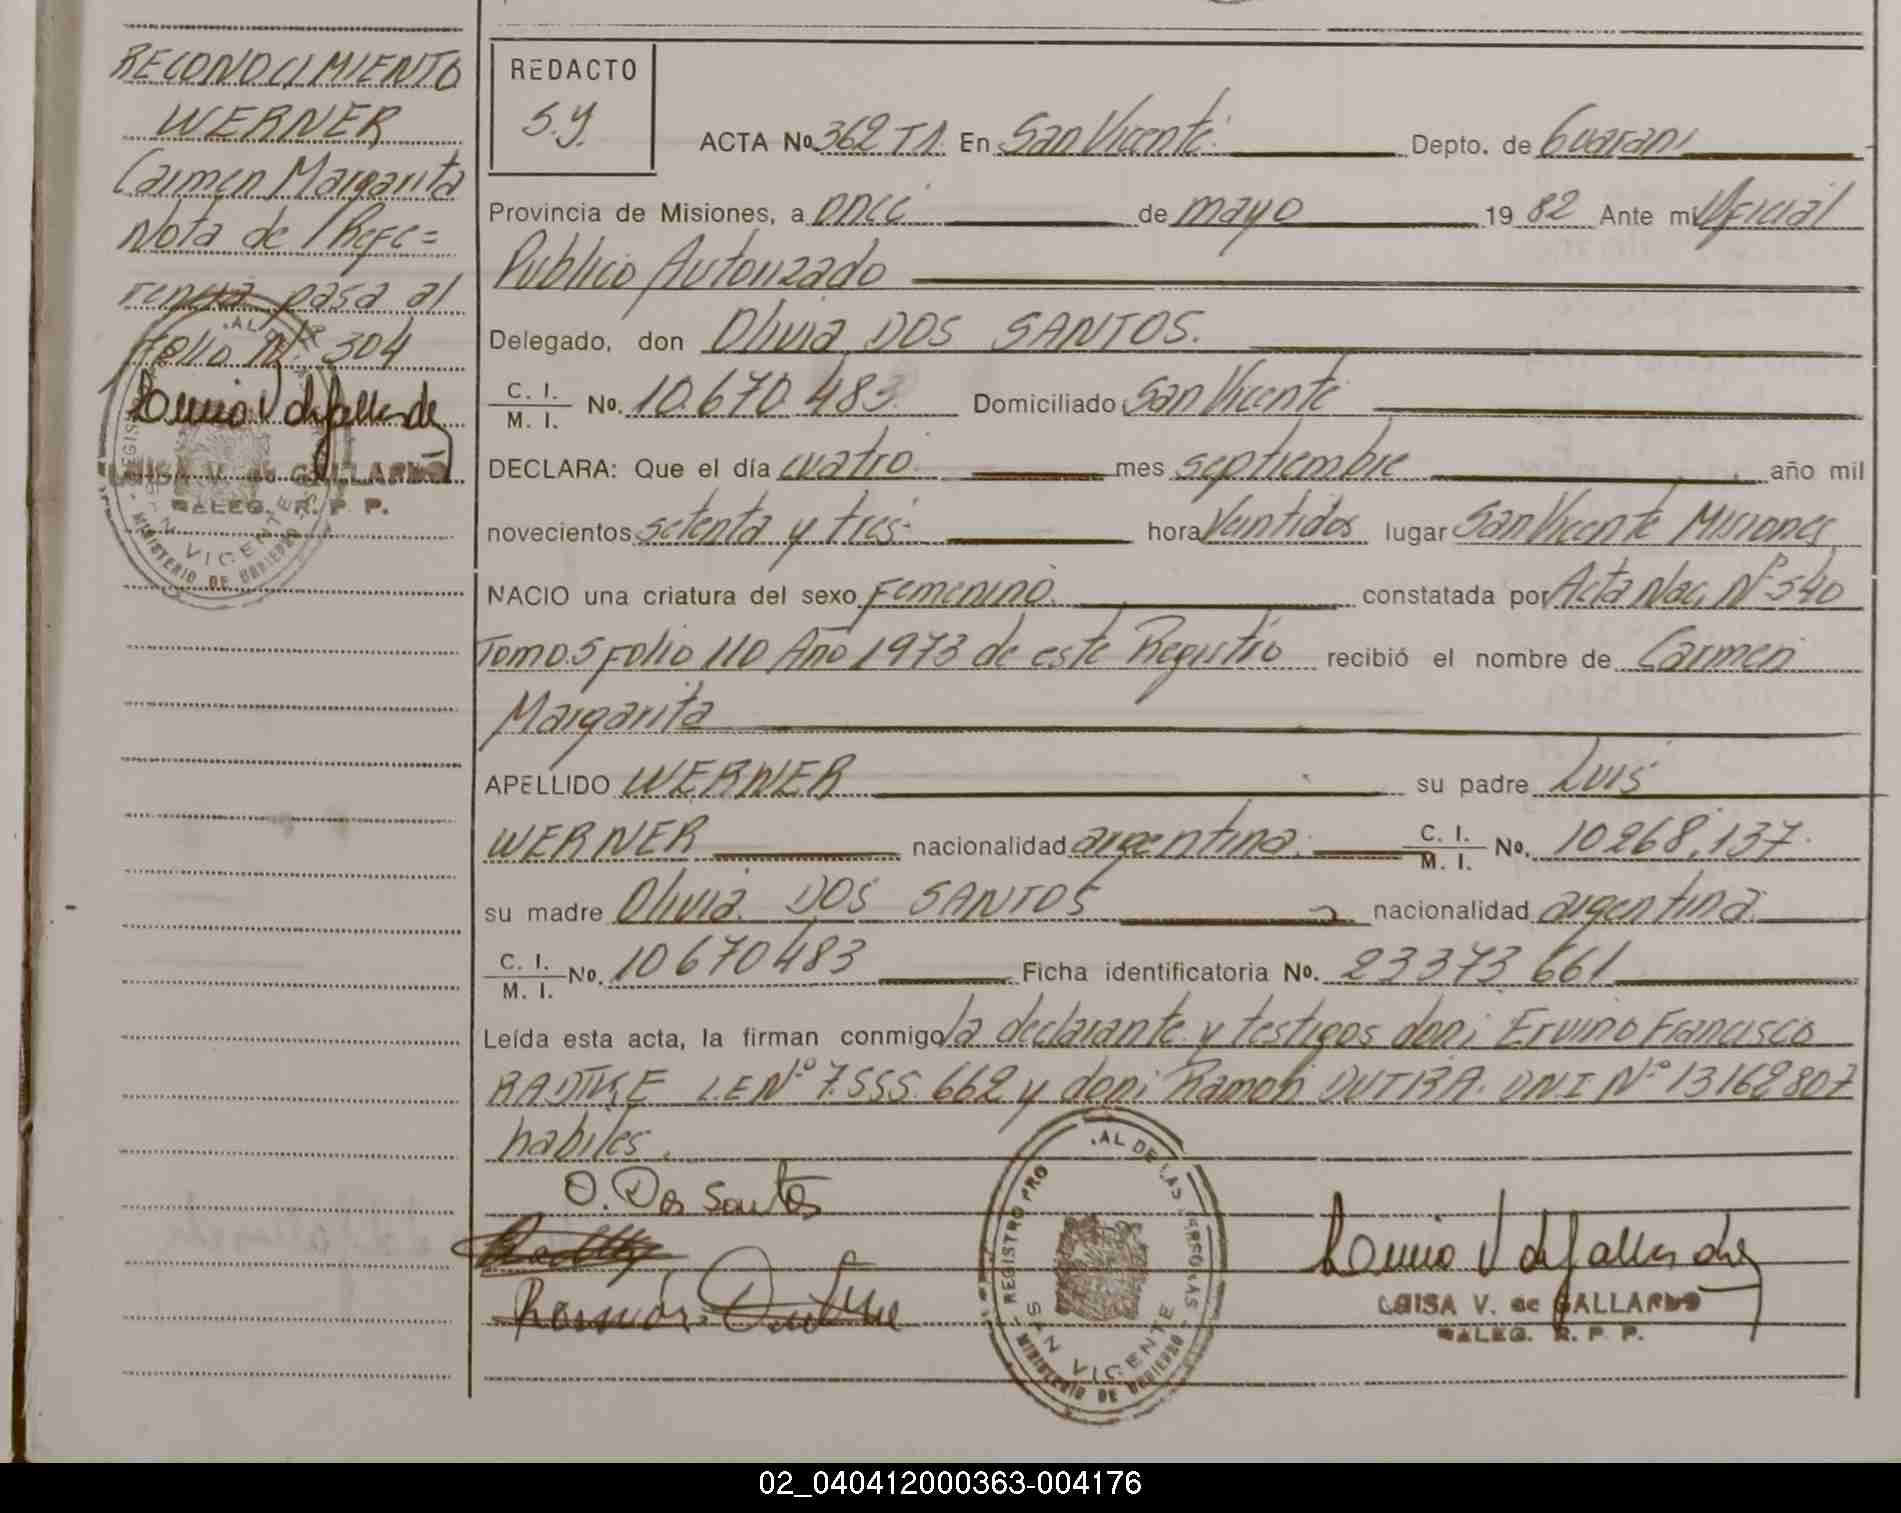 RECONOCIMIENTO
WERNER
Carmen Margarita
Nota de Refe=
rencia pasa al
folio Nº 304
LUISA V. de GALLARDO
DELEG. R. P. P.
SAN VICENTE
MINISTERIO DE GOBIERNO
REDACTO
S.Y.
ACTA No. 362 T1. En San Vicente Depto. de Guaraní
Provincia de Misiones, a once de mayo 19 82 Ante mi Oficial
Publico Autorizado
Delegado, don Olivia DOS SANTOS.
C. I. / M. I. No. 10.670.483 Domiciliado San Vicente
DECLARA: Que el día cuatro mes septiembre año mil
novecientos setenta y tres hora Veintidos lugar San Vicente Misiones
NACIO una criatura del sexo Femenino constatada por Acta Nac. Nº 540
Tomo 5 Folio 110 Año 1973 de este Registro recibió el nombre de Carmen
Margarita
APELLIDO WERNER su padre Luis
WERNER nacionalidad argentina C. I. / M. I. No. 10268.137
su madre Olivia DOS SANTOS nacionalidad argentina
C. I. / M. I. No. 10670483 Ficha identificatoria No. 23373661
Leída esta acta, la firman conmigo la declarante y testigos don: Ervino Francisco
RADTKE L.E Nº 7.555.662 y don: Ramon DUTRA. DNI Nº 13162807
habiles.
O. Dos Santos
REGISTRO PRO AL DE LAS PERSONAS
SAN VICENTE
MINISTERIO DE GOBIERNO
LUISA V. de GALLARDO
DELEG. R. P. P.
02_040412000363-004176